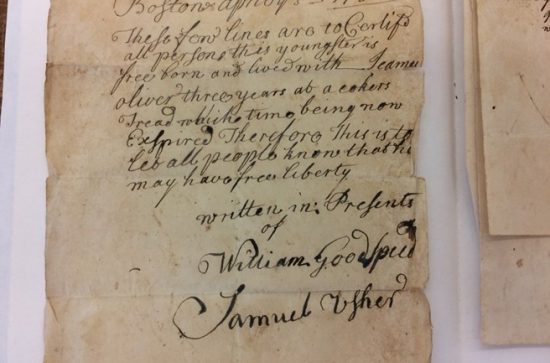 Boston April y
These few lines are to Certifi
all persons this youngster is
free born and lived with Jeames
oliver three years at a cokers
Tread which time being now
Exspired Therefore This is to
let all people know that he
may have free liberty
written in: Presents
of
William Goodspeed
Samuel Usher